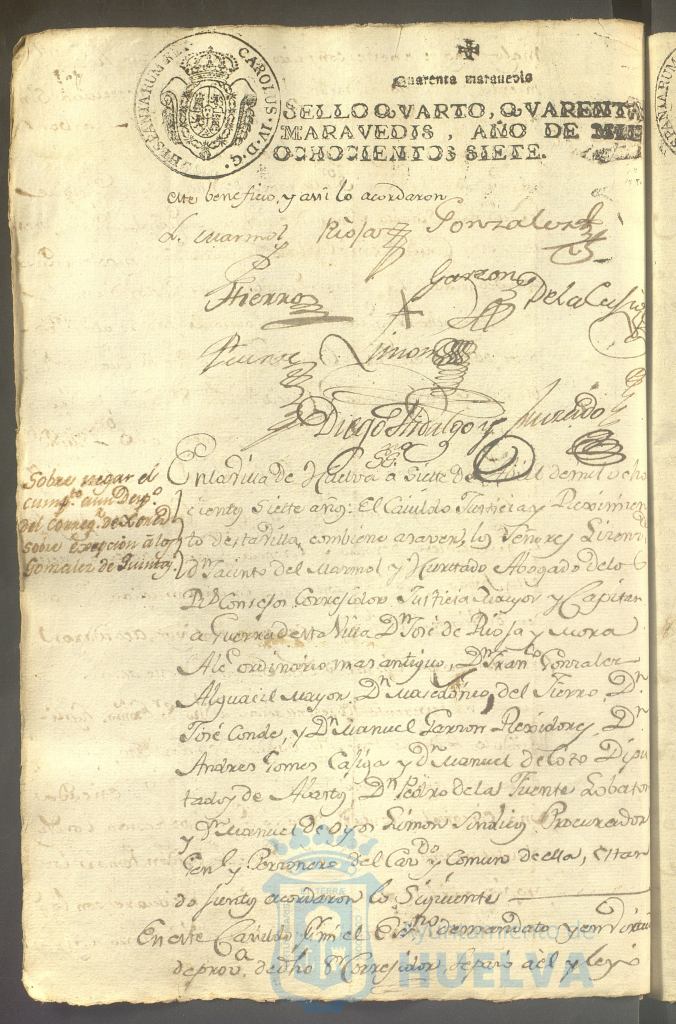 HISPANIARUM REX CAROLUS·IV·D·G·
Quarenta maravedis
SELLO QVARTO, QVARENTA
MARAVEDIS, AÑO DE MIL
OCHOCIENTOS SIETE.
este beneficio, y assi lo acordaron
L. Marmol Rioja Gonzalez
Fierro Garzon De la
Fuente Limon
Diego Hidalgo y Hurtado
Sobre negar el
cumpto. a un Desp.
del Correg.
sobre exepcion a los
Gonzalez de Quintas
En la villa de Huelva a siete de Abril de mil ocho
cientos siete años: El Cavildo Justicia y Reximien
to de esta villa, combiene a saver, los Señores Licend.
Dn. Jacinto del Marmol y Hurtado Abogado de los
Rs. Consejos Corregidor Justicia Mayor y Capitan
a Guerra de esta Villa Dn. José de Rioja y Mora
Alce. ordinario mas antiguo, Dn. Franco. Gonzalez
Alguacil Mayor, Dn. Macedonio del Fierro, Dn.
José Conde, y Dn. Manuel Garzon Rexidores, Dn.
Andres Gomes y Dn. Manuel de Soto Dipu
tados de Abastos, Dn. Pedro de la Fuente Lobato
y Dn. Manuel de Oyos Limon Sindicos Procurador
Genl. y Personero del Cavdo. y Comun de ella, Estan
do juntos acordaron lo siguiente
En este Cavildo Yo el Esno. de mandato y en
de prova. de dho Sr. Corregidor, y leyó
Ayuntamiento de
HUELVA